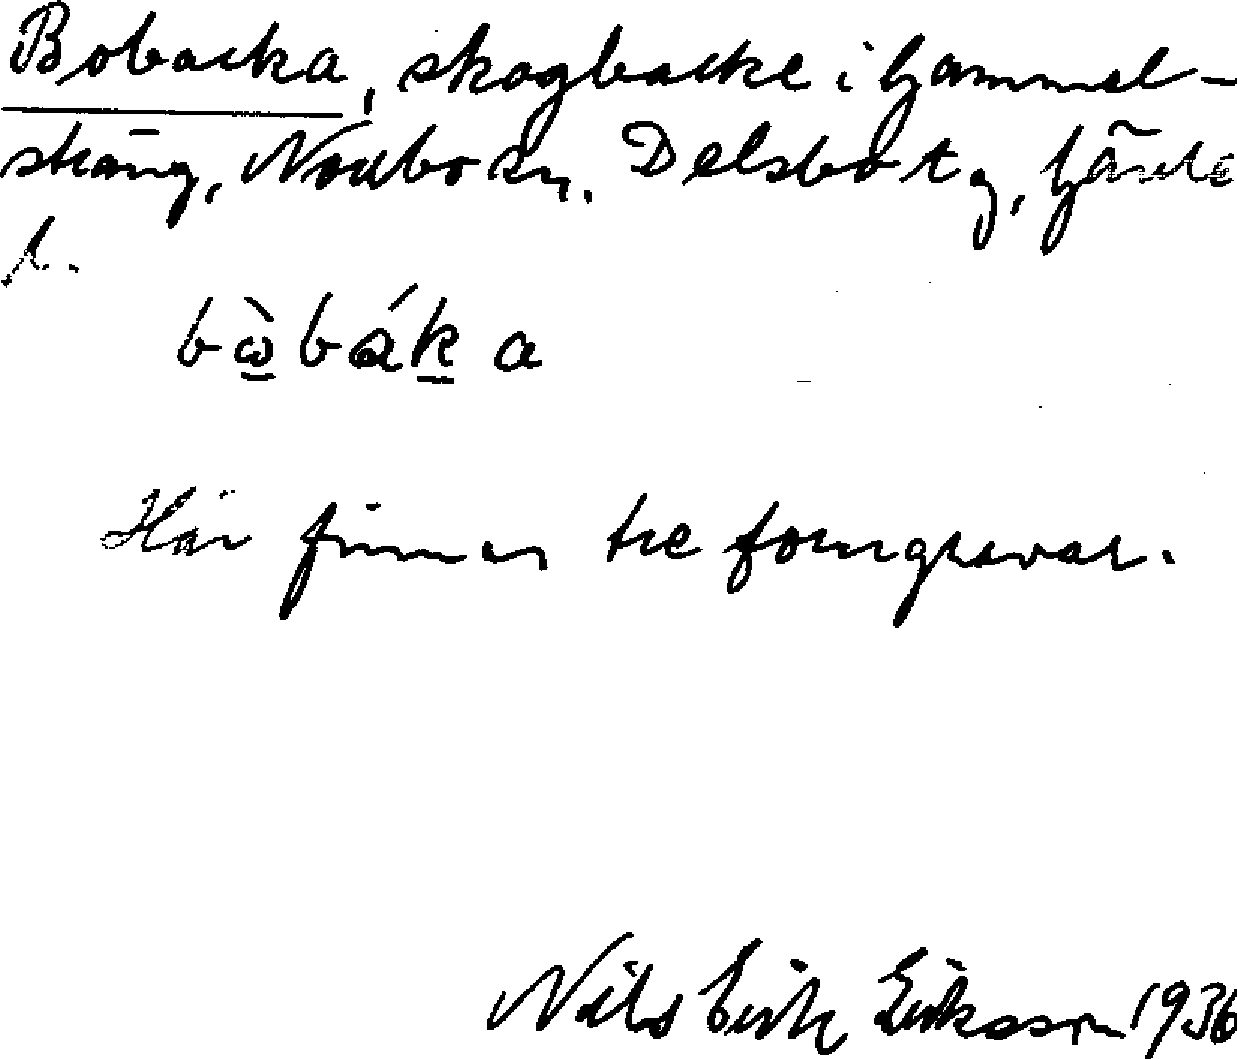 Bobacka, skogbacke i Gammel-
sträng, Norrbo sn. Delsbo tg, Gävle
l.
bὼ̱báḵa
Här finnas tre forngravar.
Nils Erik Eriksson 1936